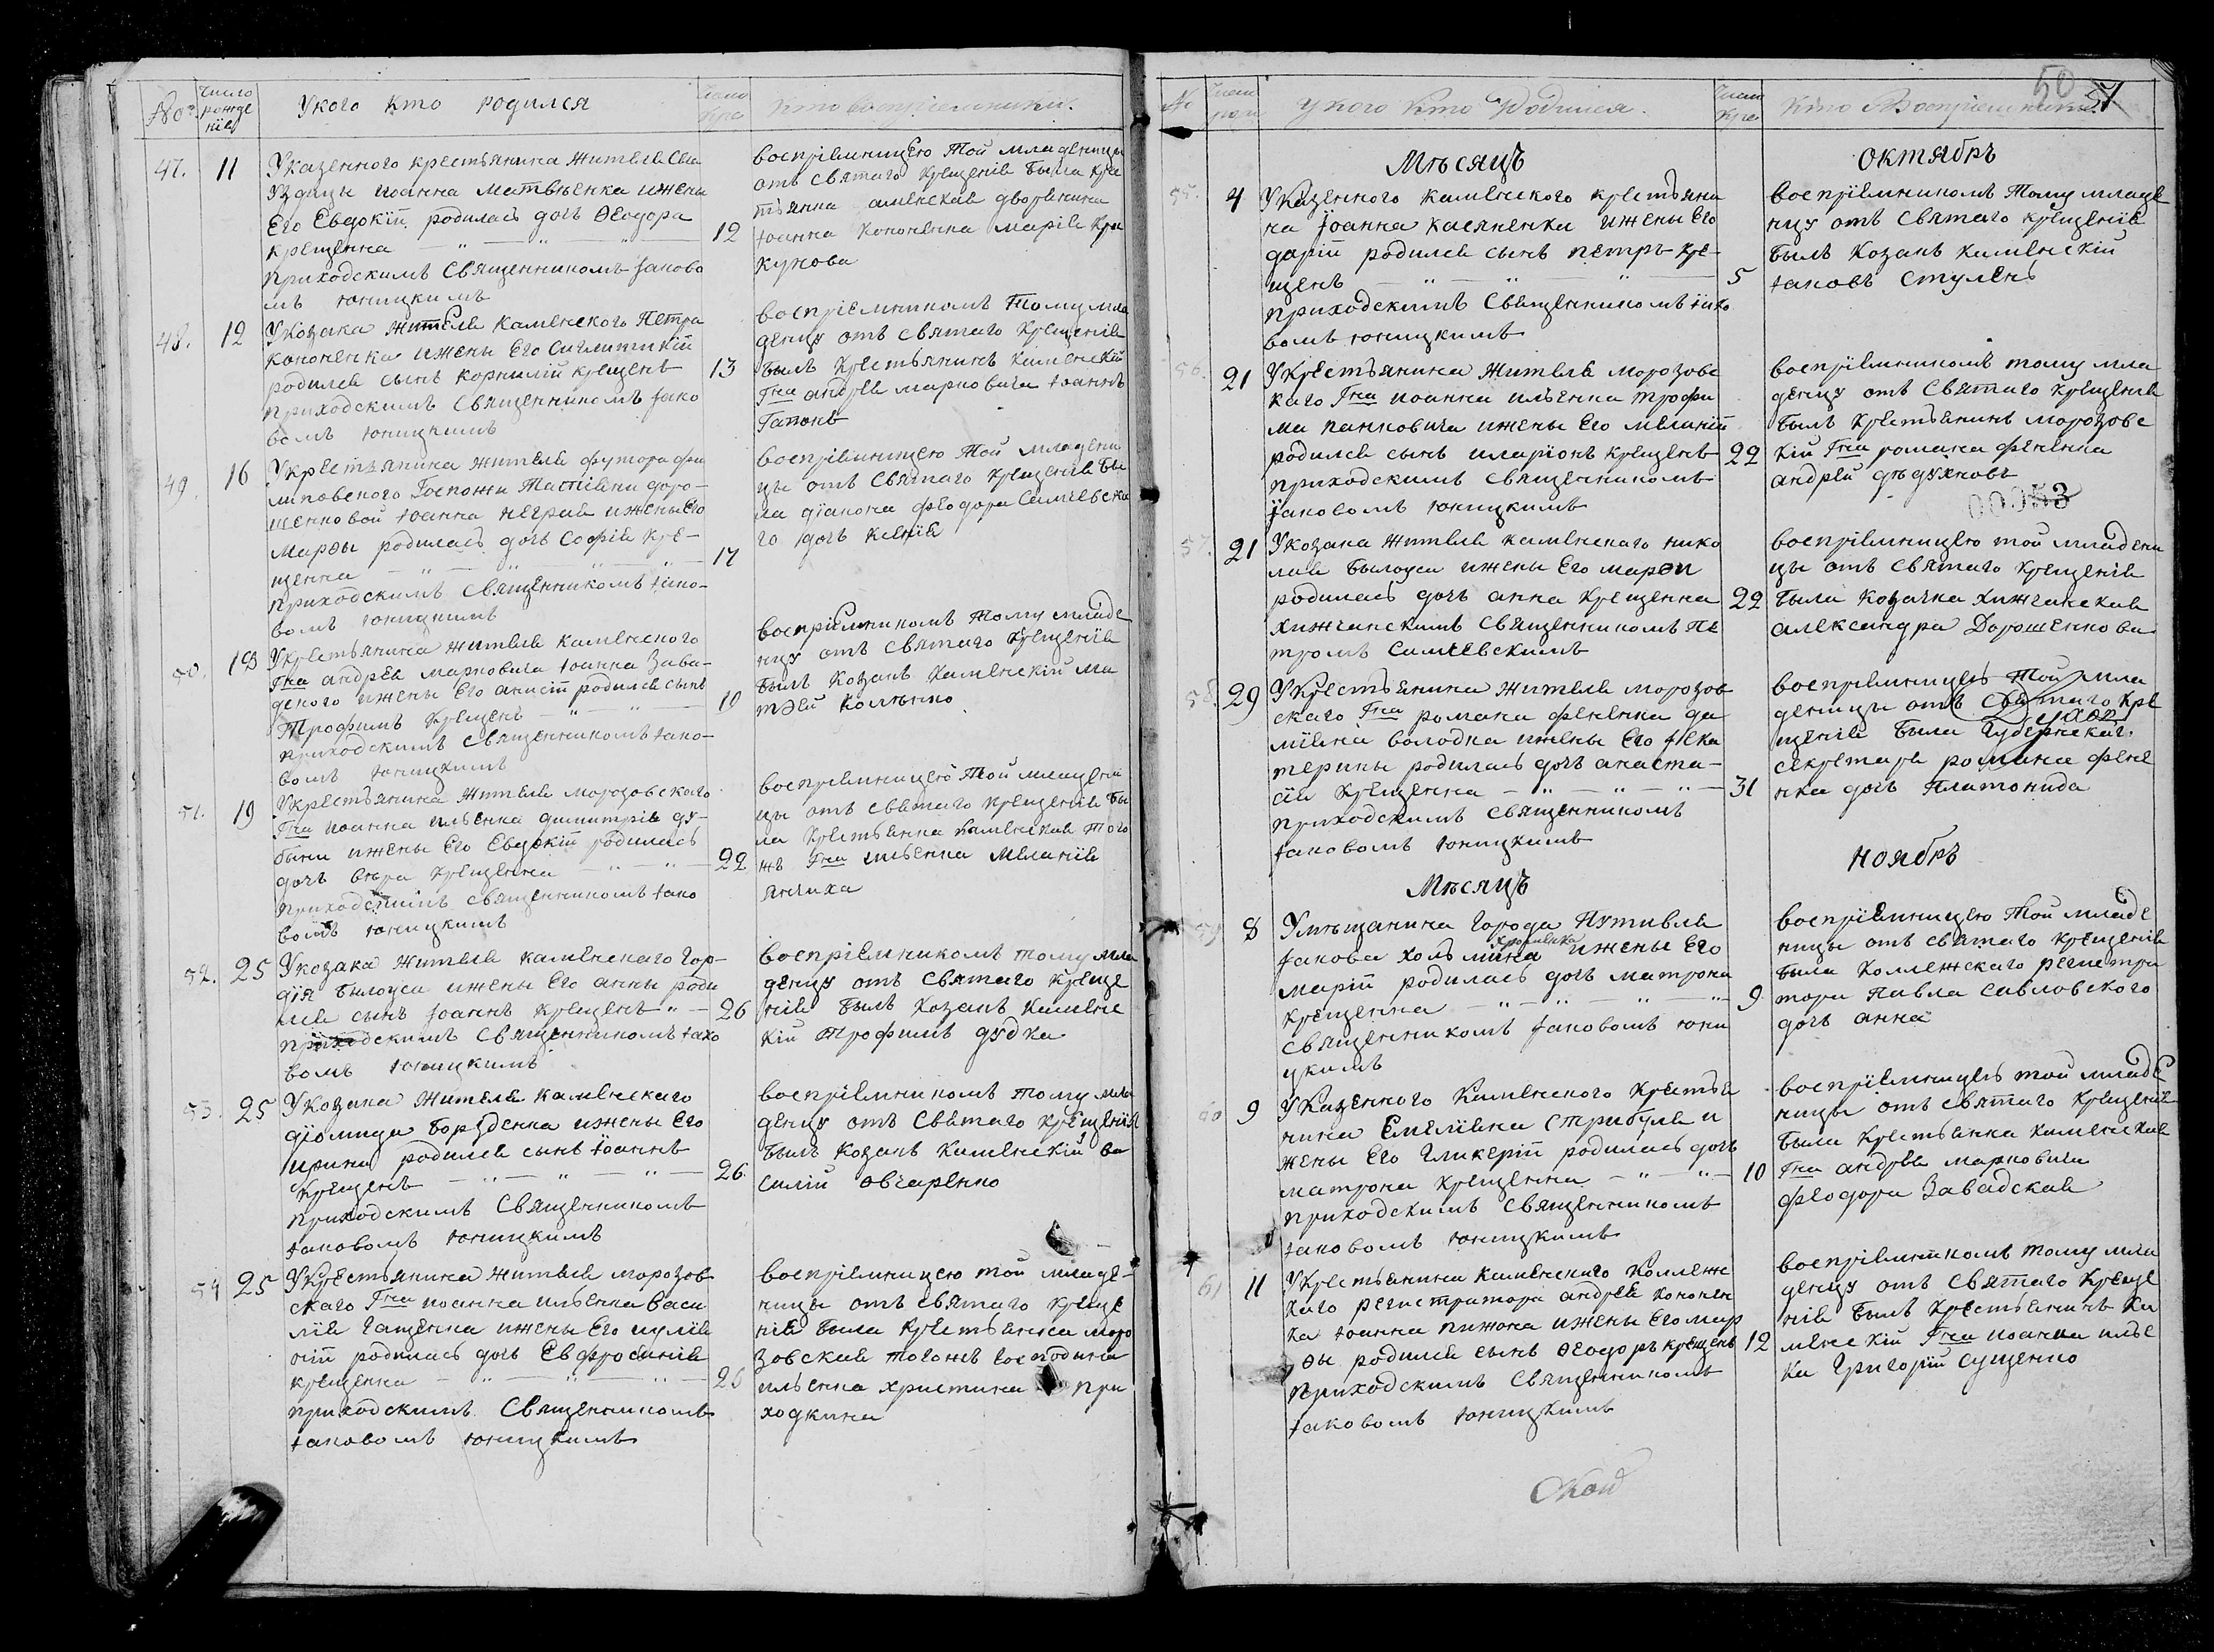 No
Число рожде нія
У кого кто родился
Число кре
Кто воспріемники.
47. 11
У казенного крестьянина жителя
Уздицы иоанна матвѣенка и жены
Его Евдокіи родилась дочь Ѳеодора
крещенна 12
приходскимъ Священникомъ Іаково
мъ Юницкимъ
воспріемницею той младеницы
отъ Святаго крещенія была кре
стьянка каменская дворянина
Іоанна кононенка марія кри
кунова
48. 12
У козака жителя Каменского Петра
кононенка и жены Его
родился сынъ корнилій крещенъ 13
приходскимъ Священникомъ Іако
вомъ Юницкимъ
воспріемникомъ тому мла
денцу отъ Святаго крещенія
былъ крестьянинъ каменскій
Гна андрея марковича Іоаннъ
Гапонъ
49. 16
У крестьянина жителя футора фи
липовского Госпожи Татіяни доро-
шенковой Іоанна нечрая и жены Его
марѳы родилась дочь Софія кре-
щенна 17
приходскимъ Священникомъ Іако-
вомъ Юницкимъ
воспріемницею той младени
цы отъ Святаго крещенія бы
ла діакона феодора Симчевска
го дочь ксенія
50. 18
У крестьянина жителя каменского
Гна андрея марковича Іоанна Зава-
дского и жены Его анисіи родился сынъ
Трофимъ крещенъ 19
приходскимъ Священникомъ Іако-
вомъ Юницкимъ
воспріемникомъ тому младе
нцу отъ Святаго крещенія
былъ козакъ каменскій ма
тѳей коленко
51. 19
У крестьянина жителя морозовского
Гна иоанна ильенка димитрія ду-
бины и жены Его Евдокіи родилась
дочь вѣра крещенна 22
приходскимъ священникомъ Іако
вомъ Юницкимъ
воспріемницею той младени
цы отъ святаго крещенія бы
ла крестьянка каменская того
жъ Гна ильенка меланія
янчиха
52. 25
У козака жителя каменского Гор-
дія былоуса и жены Его анны роди
лся сынъ Іоаннъ крещенъ 26
приходскимъ Священникомъ Іако
вомъ Юницкимъ
воспріемникомъ тому мла
денцу отъ Святаго креще
нія былъ козакъ каменс
кій трофимъ дудка
53. 25
У козака жителя каменского
діомида борзденка и жены Его
ирины родился сынъ Іоаннъ
крещенъ 26
приходскимъ Священникомъ
Іаковомъ Юницкимъ
воспріемникомъ тому мла
денцу отъ Святаго крещенія
былъ козакъ каменскій ва
силій овчаренко
54 25
У крестьянина жителя морозов
скаго Гна иоанна ильенка васи
лія гащенка и жены Его иулія
ніи родилась дочь Евфросинія
крещенна 26
приходскимъ Священникомъ
Іаковомъ Юницкимъ
воспріемницею той младе-
ницы отъ святаго креще
нія была крестьянка моро
зовская тогожъ господина
ильенка христина при
ходкина
50 51
№
У кого Кто Родился.
Кто Воспріемники
Мѣсяцъ октябръ
55. 4
У казенного каменского крестьяни
на Іоанна касяненка и жены Его
даріи родился сынъ петръ кре-
щенъ 5
приходскимъ Священникомъ Іако
вомъ Юницкимъ
воспріемникомъ тому младе
нцу отъ Святаго крещенія
былъ козакъ каменскій
Іаковъ Стулень
56. 21
У крестьянина жителя морозовс
каго Гна иоанна ильенка трофи
ма панковича и жены Его меланіи
родился сынъ иларіонъ крещенъ 22
приходскимъ священникомъ
Іаковомъ Юницкимъ
воспріемникомъ тому мла
денцу отъ Святаго крещенія
былъ крестьянинъ морозовс
кій Гна романа фененка
андрей дѣдухновъ
00053
57. 21
У козака жителя каменского нико
лая былоуса и жены Его марѳи
родилась дочь анна крещенна 22
хижчанскимъ священникомъ пе
тромъ Симчевскимъ
воспріемницею той младени
цы отъ святаго крещенія
была козачка хижчанская
александра Дорошенкова
58. 29
У крестьянина жителя морозов
скаго Гна романа фененка да
міяна володка и жены Его Іека
терины родилась дочь анаста-
сія крещенна 31
приходскимъ священникомъ
Іаковомъ Юницкимъ
воспріемницею той мла
деницы отъ Святаго кре
щенія была губернскаго
секретаря романа фене
нка дочь Платонида
Мѣсяцъ ноябръ
59 8
У мѣщанина города Путивля
Іакова и жены Его
маріи родилась дочь матрона
крещенна 9
священникомъ Іаковомъ юни
цкимъ
воспріемницею той младе
ницы отъ святаго крещенія
была коллежскаго регистра
тора Павла савловского
дочь анна
60 9
У казенного каменского крестья
нина Емеліяна Стрибуля и
жены Его гликеріи родилась дочь
матрона крещенна 10
приходскимъ священникомъ
Іаковомъ Юницкимъ
воспріемницею той младе
ницы отъ святаго крещенія
была крестьянка каменская
Гна андрея марковича
феодора Завадская
61 11
У крестьянина каменского коллежс
каго регистратора андрея кононен
ка Іоанна пижона и жены Его мар
ѳы родился сынъ ѳеодоръ крещенъ 12
приходскимъ Священникомъ
Іаковомъ Юницкимъ
воспріемникомъ тому мла
денцу отъ Святаго креще
нія былъ крестьянинъ ка
менскій Гна иоанна илье
ка григорій сущенко